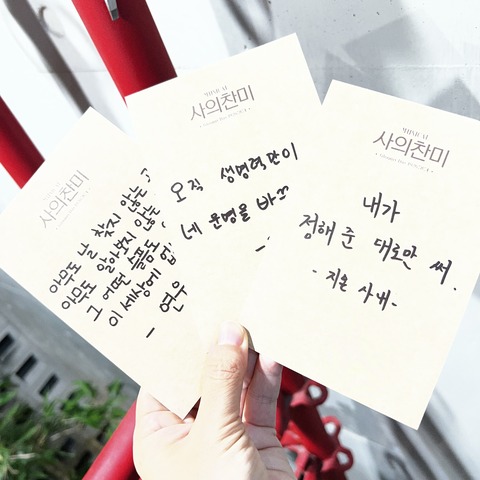 사의찬미
아무도 날 찾지 않는
아무도 알아보지 않는
그 어떤 소풀도 없
이 세상에
연우
MUSICAL
사의찬미
오직 생명력만이
네 운명을 바꿔
MUSICAL
사의찬미
내가
정해 준 대로만 써.
- 지은 사내 -